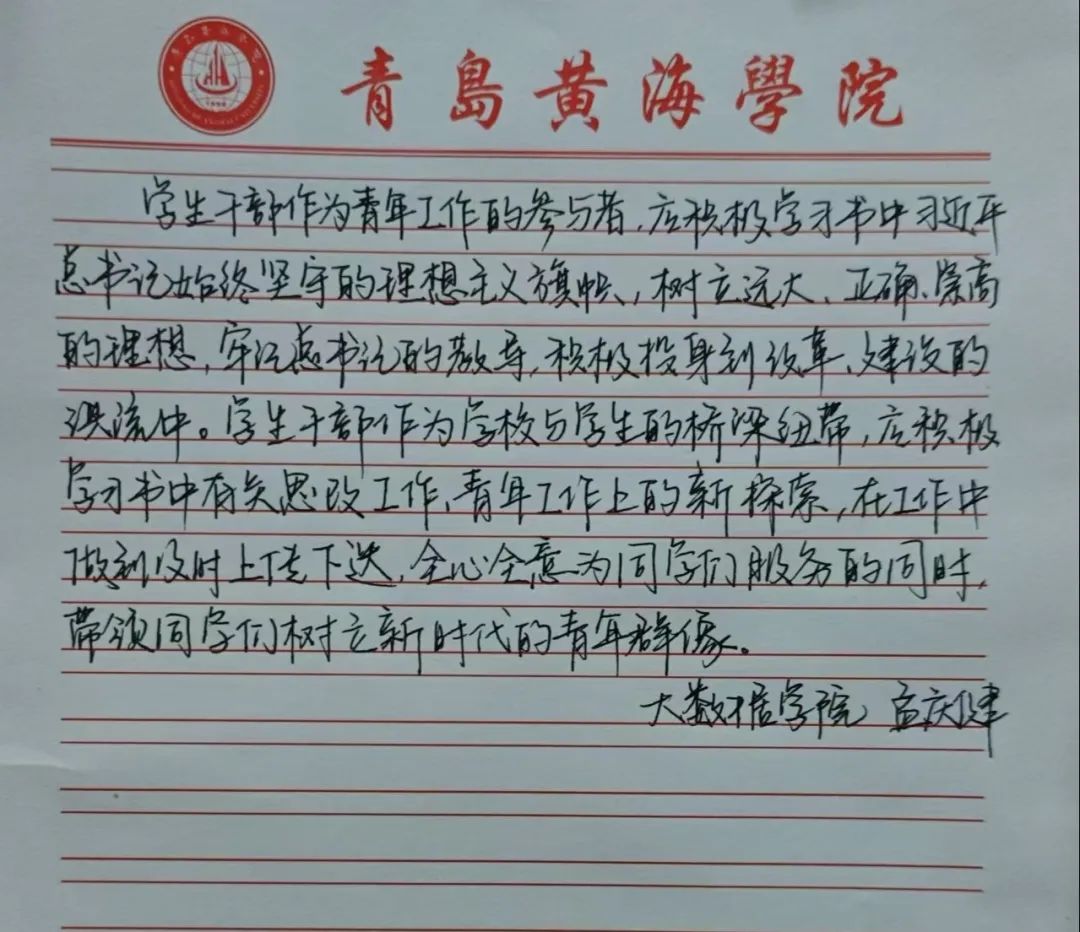 青島黄海學院
学生干部作为青年工作的参与者，应积极学习书中习近平
总书记始终坚守的理想主义旗帜，树立远大、正确、崇高
的理想，牢记总书记的教导，积极投身到改革、建设的
洪流中。学生干部作为学校与学生的桥梁纽带，应积极
学习书中有关思政工作、青年工作上的新探索，在工作中
做到及时上传下达，全心全意为同学们服务的同时，
带领同学们树立新时代的青年群像。
大数据学院 孟庆健